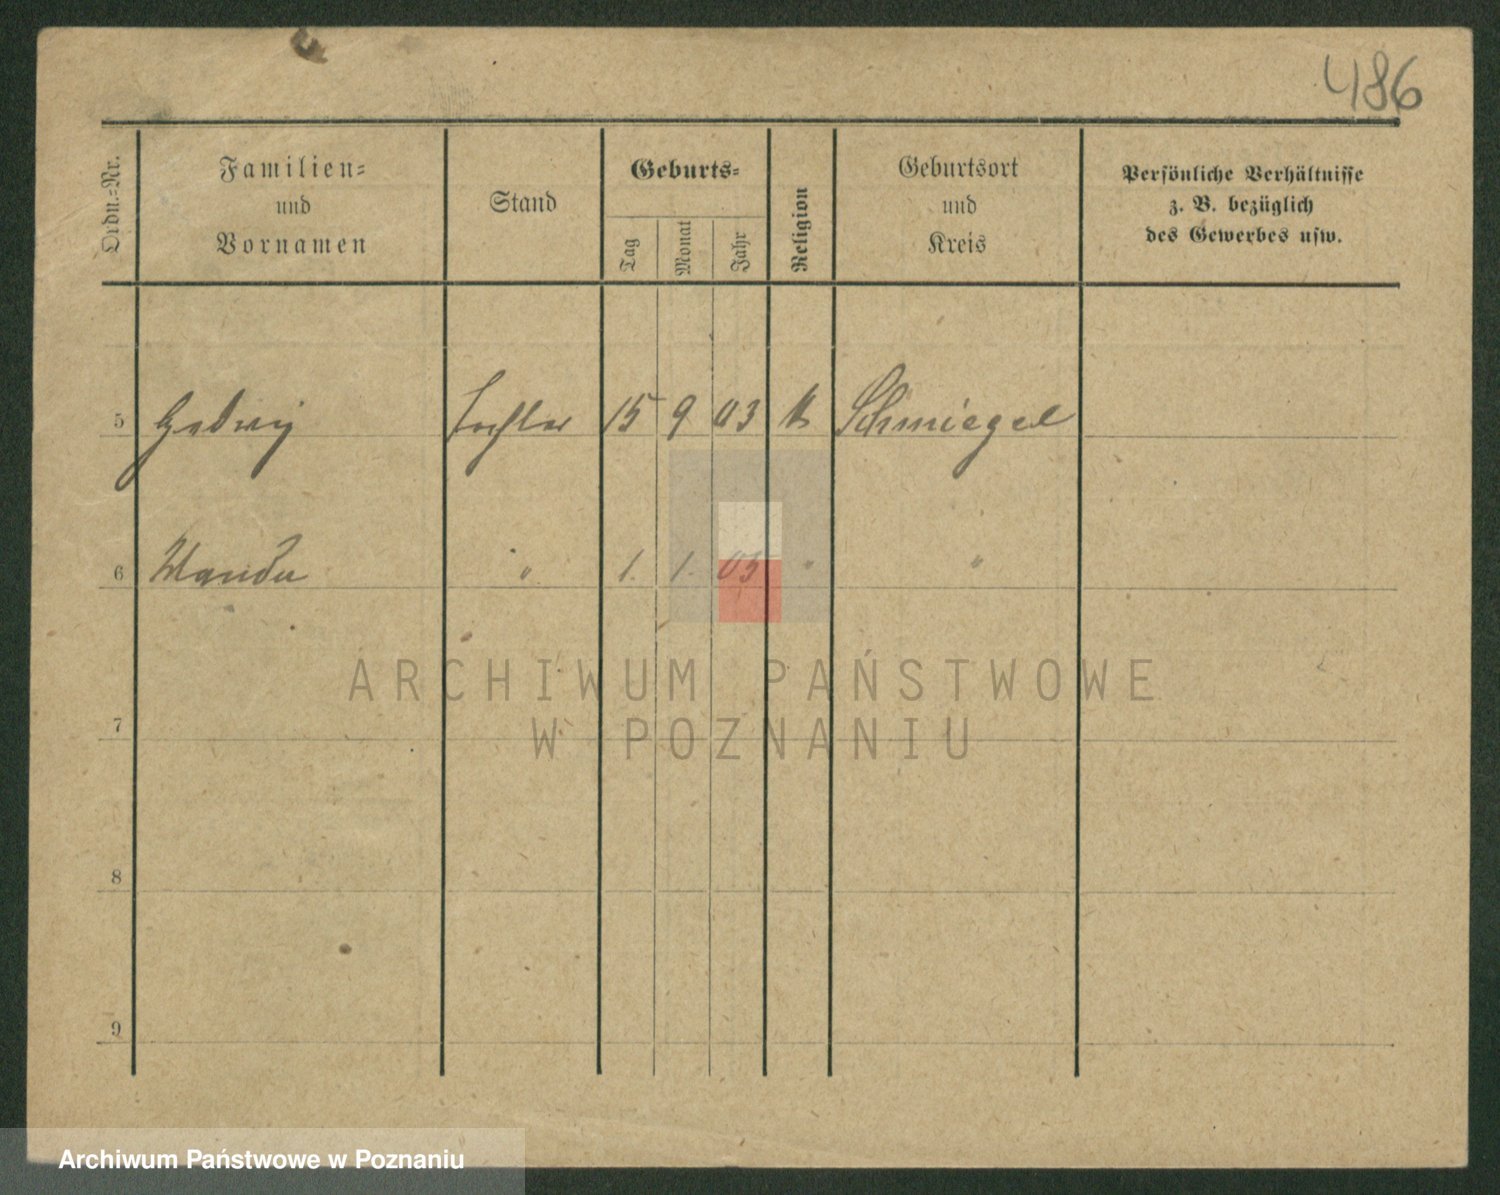 486
Ordn.-Nr.
Familien-
und
Vornamen
Stand
Geburts-
Tag
Monat
Jahr
Religion
Geburtsort
und
Kreis
Persönliche Verhältnisse
z. B. bezüglich
des Gewerbes usw.
5 Hedwig Tochter 15 9 03 k Schmiegel
6 Wanda " 1. 1. 05 " "
ARCHIWUM PAŃSTWOWE
W POZNANIU
7
8
9
Archiwum Państwowe w Poznaniu